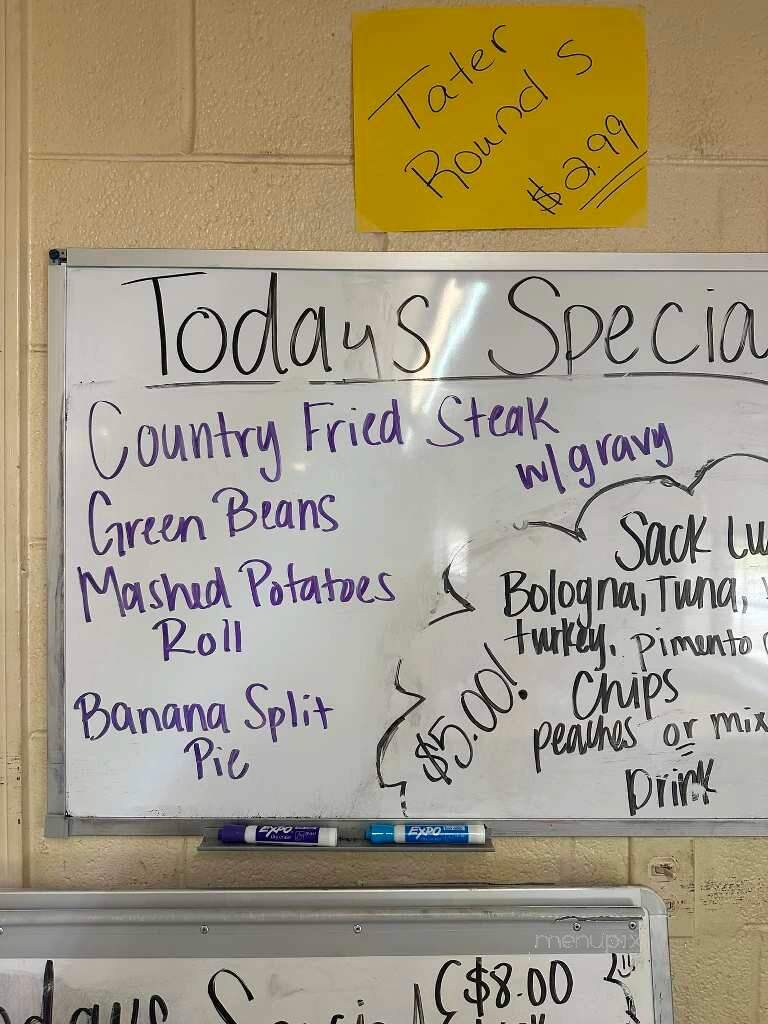 Tater
Rounds
$2.99
Todays Specia
Country Fried Steak
w/gravy
Green Beans
Mashed Potatoes
Roll
Banana Split
Pie
Sack Lu
Bologna, Tuna,
turkey, pimento
Chips
peaches or mix
Drink
$5.00!
EXPO
EXPO
menupix
($8.00